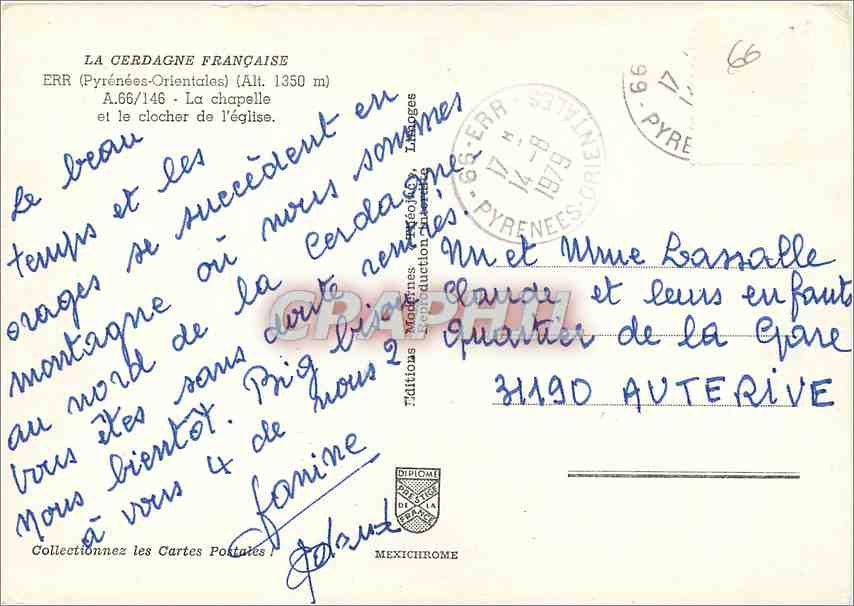 LA CERDAGNE FRANÇAISE
ERR (Pyrénées-Orientales) (Alt. 1350 m)
A.66/146 - La chapelle
et le clocher de l'église.
Le beau
temps et les
orages se succèdent en
montagne où nous sommes
au nord de la Cerdagne.
Vous êtes sans doute rentrés.
Nous bientôt. Big bisou
à vous 4 de nous 2
Janine
Collectionnez les Cartes Postales !
Editions Modernes Théojac, Limoges
Reproduction interdite
66 - ERR - PYRENEES-ORIENTALES
17 H
14 -8
1979
66
17
66 - PYRE
Mr et Mme Lassalle
Claude et leurs enfants
Quartier de la Gare
31190 AUTERIVE
DIPLOME
PRESTIGE
DE LA
FRANCE
MEXICHROME
CPAPHIL